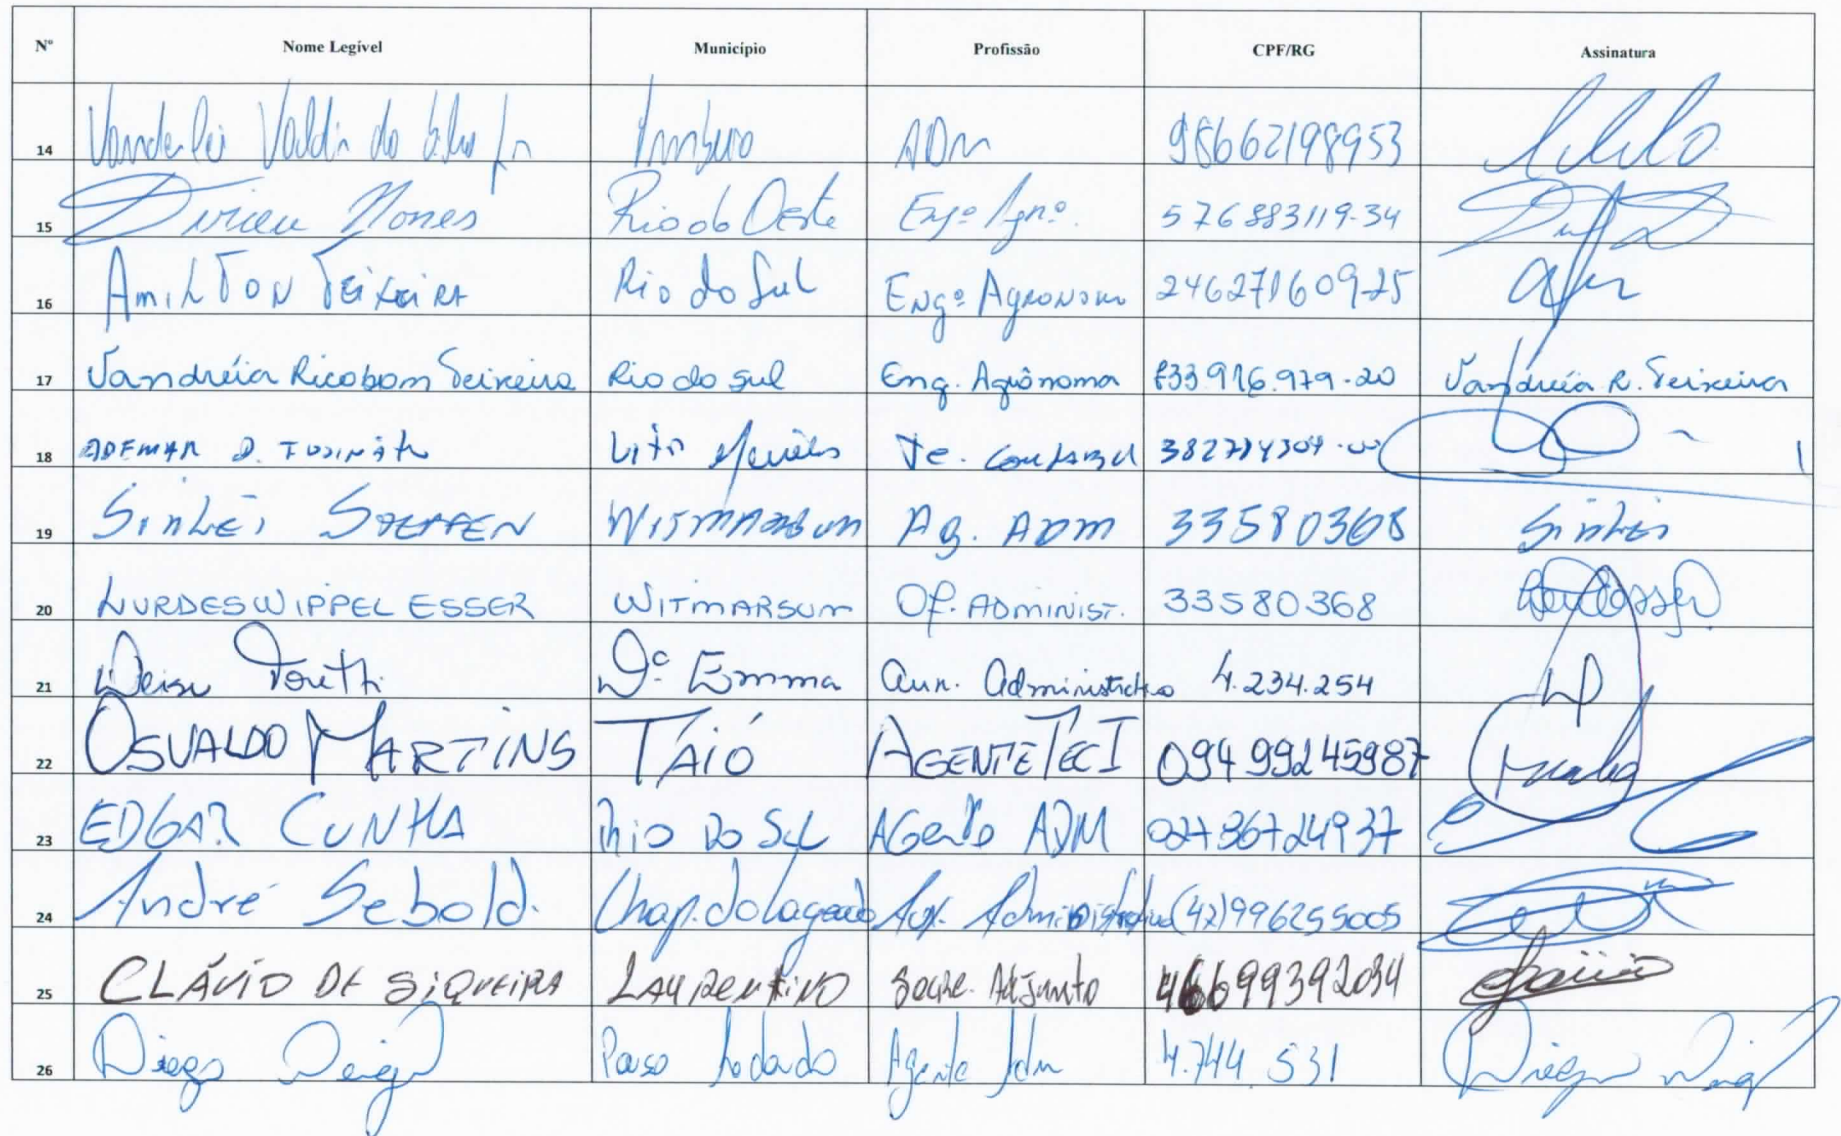 Nº Nome Legível Município Profissão CPF/RG Assinatura
14 Vanderlei Valdir da Silva Jr Imbuia ADM 98662198953
15 Dirceu Nones Rio do Oeste Engº Agrº. 576883119-34
16 AmilTON TeixeiRA Rio do Sul Engº Agronomo 246271609-25
17 Vandréia Ricobom Teixeira Rio do Sul Eng. Agrônoma 833.916.979-20 Vandréia R. Teixeira
18 ADEMAR D. Vitor Meireles
19 SinLEi STEFFEN WITMARSUM AG. ADM 33580368 SinLEi
20 LURDES WIPPEL ESSER WITMARSUM Of. ADMINIST. 33580368
21 Dª Emma Aux. Administrativo 4.234.254
22 OSVALDO MARTINS TAIÓ AGENTE TEC I 09499245987
23 EDGAR CUNHA Rio Do Sul AGente ADM 02736724937
24 André Sebold. Chap. do Lageado Aux. Administrativo (47)996255005
25 CLÁVIO DE SiQUEiRA LAURENTINO Secre. Adjunto 46699392034
26 Diego Pouso Redondo Agente Adm 4.744.531 Diego